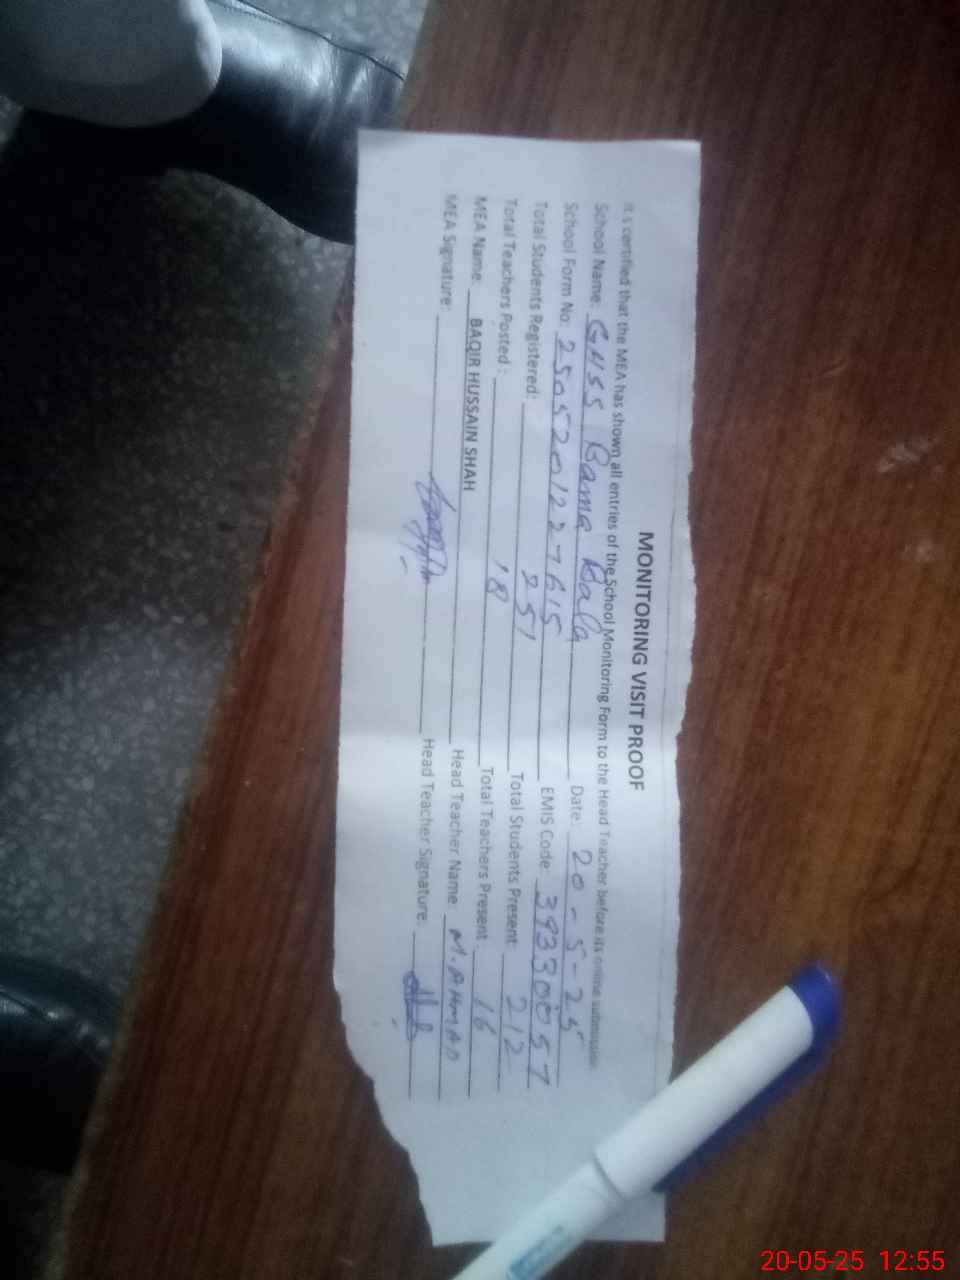 MONITORING VISIT PROOF
It s certified that the MEA has shown all entries of the School Monitoring Form to the Head Teacher before its online submission.
School Name: GHSS Bama Bala Date: 20-5-25
School Form No: 2505201227615 EMIS Code: 39330057
Total Students Registered: 251 Total Students Present: 212
Total Teachers Posted : 18 Total Teachers Present 16
MEA Name: BAQIR HUSSAIN SHAH Head Teacher Name: M. AHMAD
MEA Signature: Head Teacher Signature:
20-05-25 12:55